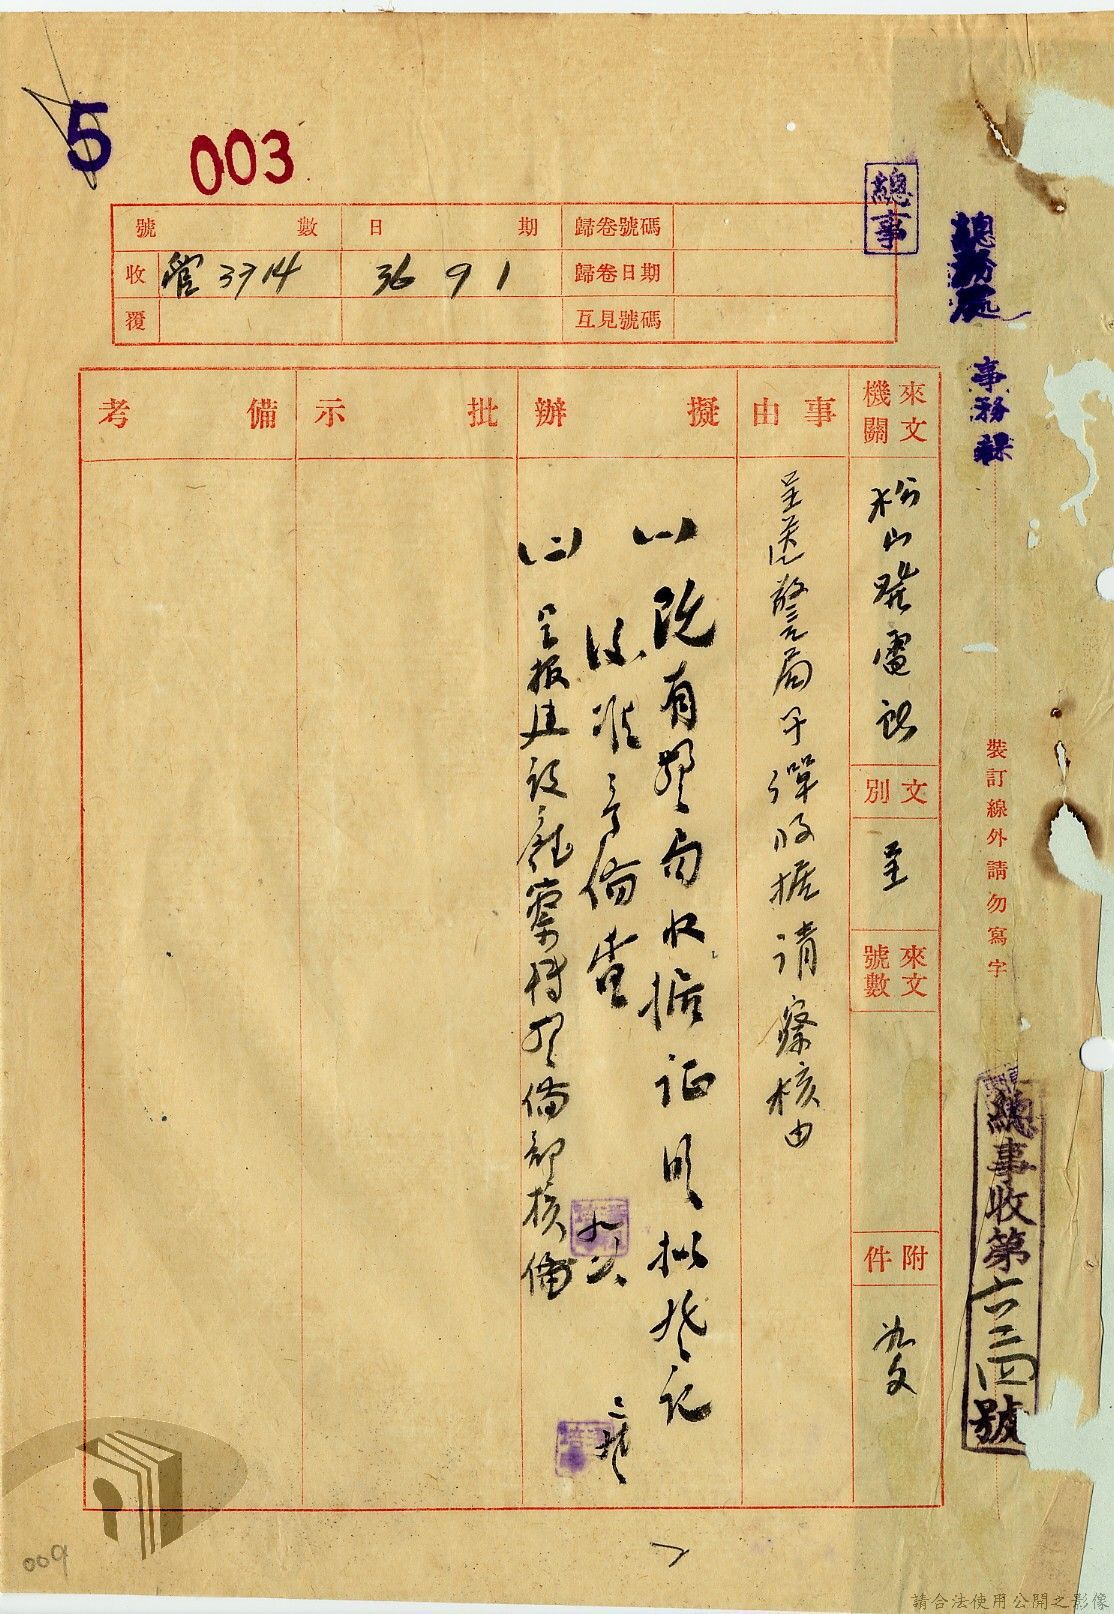 5
003
總事
總務處
事務課
號數 日期 歸卷號碼
收 管 3314 36 9 1 歸卷日期
覆 互見號碼
來文機關
松山發電所
文別
呈
來文號數
附件
如文
事由
呈送警局子彈收據請察核由
擬辦
(一)既有警局收據証明擬登記
後准予備查
(二)呈報建設廳察轉警備部核備
批示
備考
裝訂線外請勿寫字
總事收第六三四號
009
請合法使用公開之影像